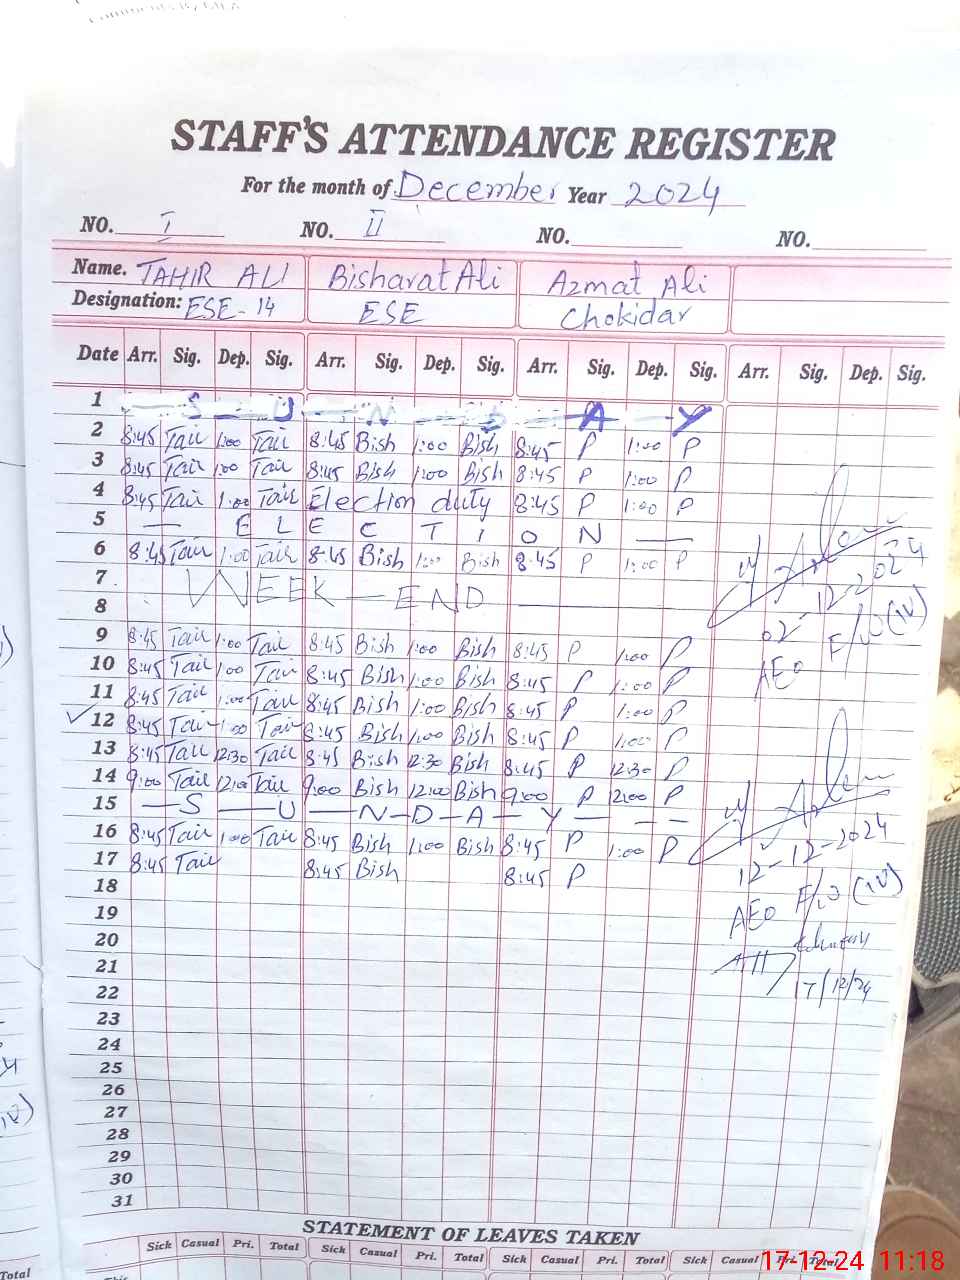 STAFF'S ATTENDANCE REGISTER
For the month of December Year 2024
NO. I NO. II NO. NO.
Name. TAHIR ALI Bisharat Ali Azmat Ali
Designation: ESE-14 ESE Chokidar
Date Arr. Sig. Dep. Sig. Arr. Sig. Dep. Sig. Arr. Sig. Dep. Sig. Arr. Sig. Dep. Sig.
1 — S — U — N — D — A — Y
2 8:45 Tair 1:00 Tair 8:45 Bish 1:00 Bish 8:45 P 1:00 P
3 8:45 Tair 1:00 Tair 8:45 Bish 1:00 Bish 8:45 P 1:00 P
4 8:45 Tair 1:00 Tair Election duty 8:45 P 1:00 P
5 — E L E C T I O N —
6 8:45 Tair 1:00 Tair 8:45 Bish 1:00 Bish 8:45 P 1:00 P
7 WEEK — END
8
02-12-2024
AEO F/W (IV)
9 8:45 Tair 1:00 Tair 8:45 Bish 1:00 Bish 8:45 P 1:00 P
10 8:45 Tair 1:00 Tair 8:45 Bish 1:00 Bish 8:45 P 1:00 P
11 8:45 Tair 1:00 Tair 8:45 Bish 1:00 Bish 8:45 P 1:00 P
12 8:45 Tair 1:00 Tair 8:45 Bish 1:00 Bish 8:45 P 1:00 P
13 8:45 Tair 12:30 Tair 8:45 Bish 12:30 Bish 8:45 P 12:30 P
14 9:00 Tair 12:00 Tair 9:00 Bish 12:00 Bish 9:00 P 12:00 P
15 — S — U — N — D — A — Y — — —
16 8:45 Tair 1:00 Tair 8:45 Bish 1:00 Bish 8:45 P 1:00 P
17 8:45 Tair 8:45 Bish 8:45 P
12-12-2024
AEO F/W (IV)
18
19
20
21
17/12/24
22
23
24
25
26
27
28
29
30
31
STATEMENT OF LEAVES TAKEN
Sick Casual Pri. Total Sick Casual Pri. Total Sick Casual Pri. Total Sick Casual Pri. Total
Total This
17-12-24 11:18